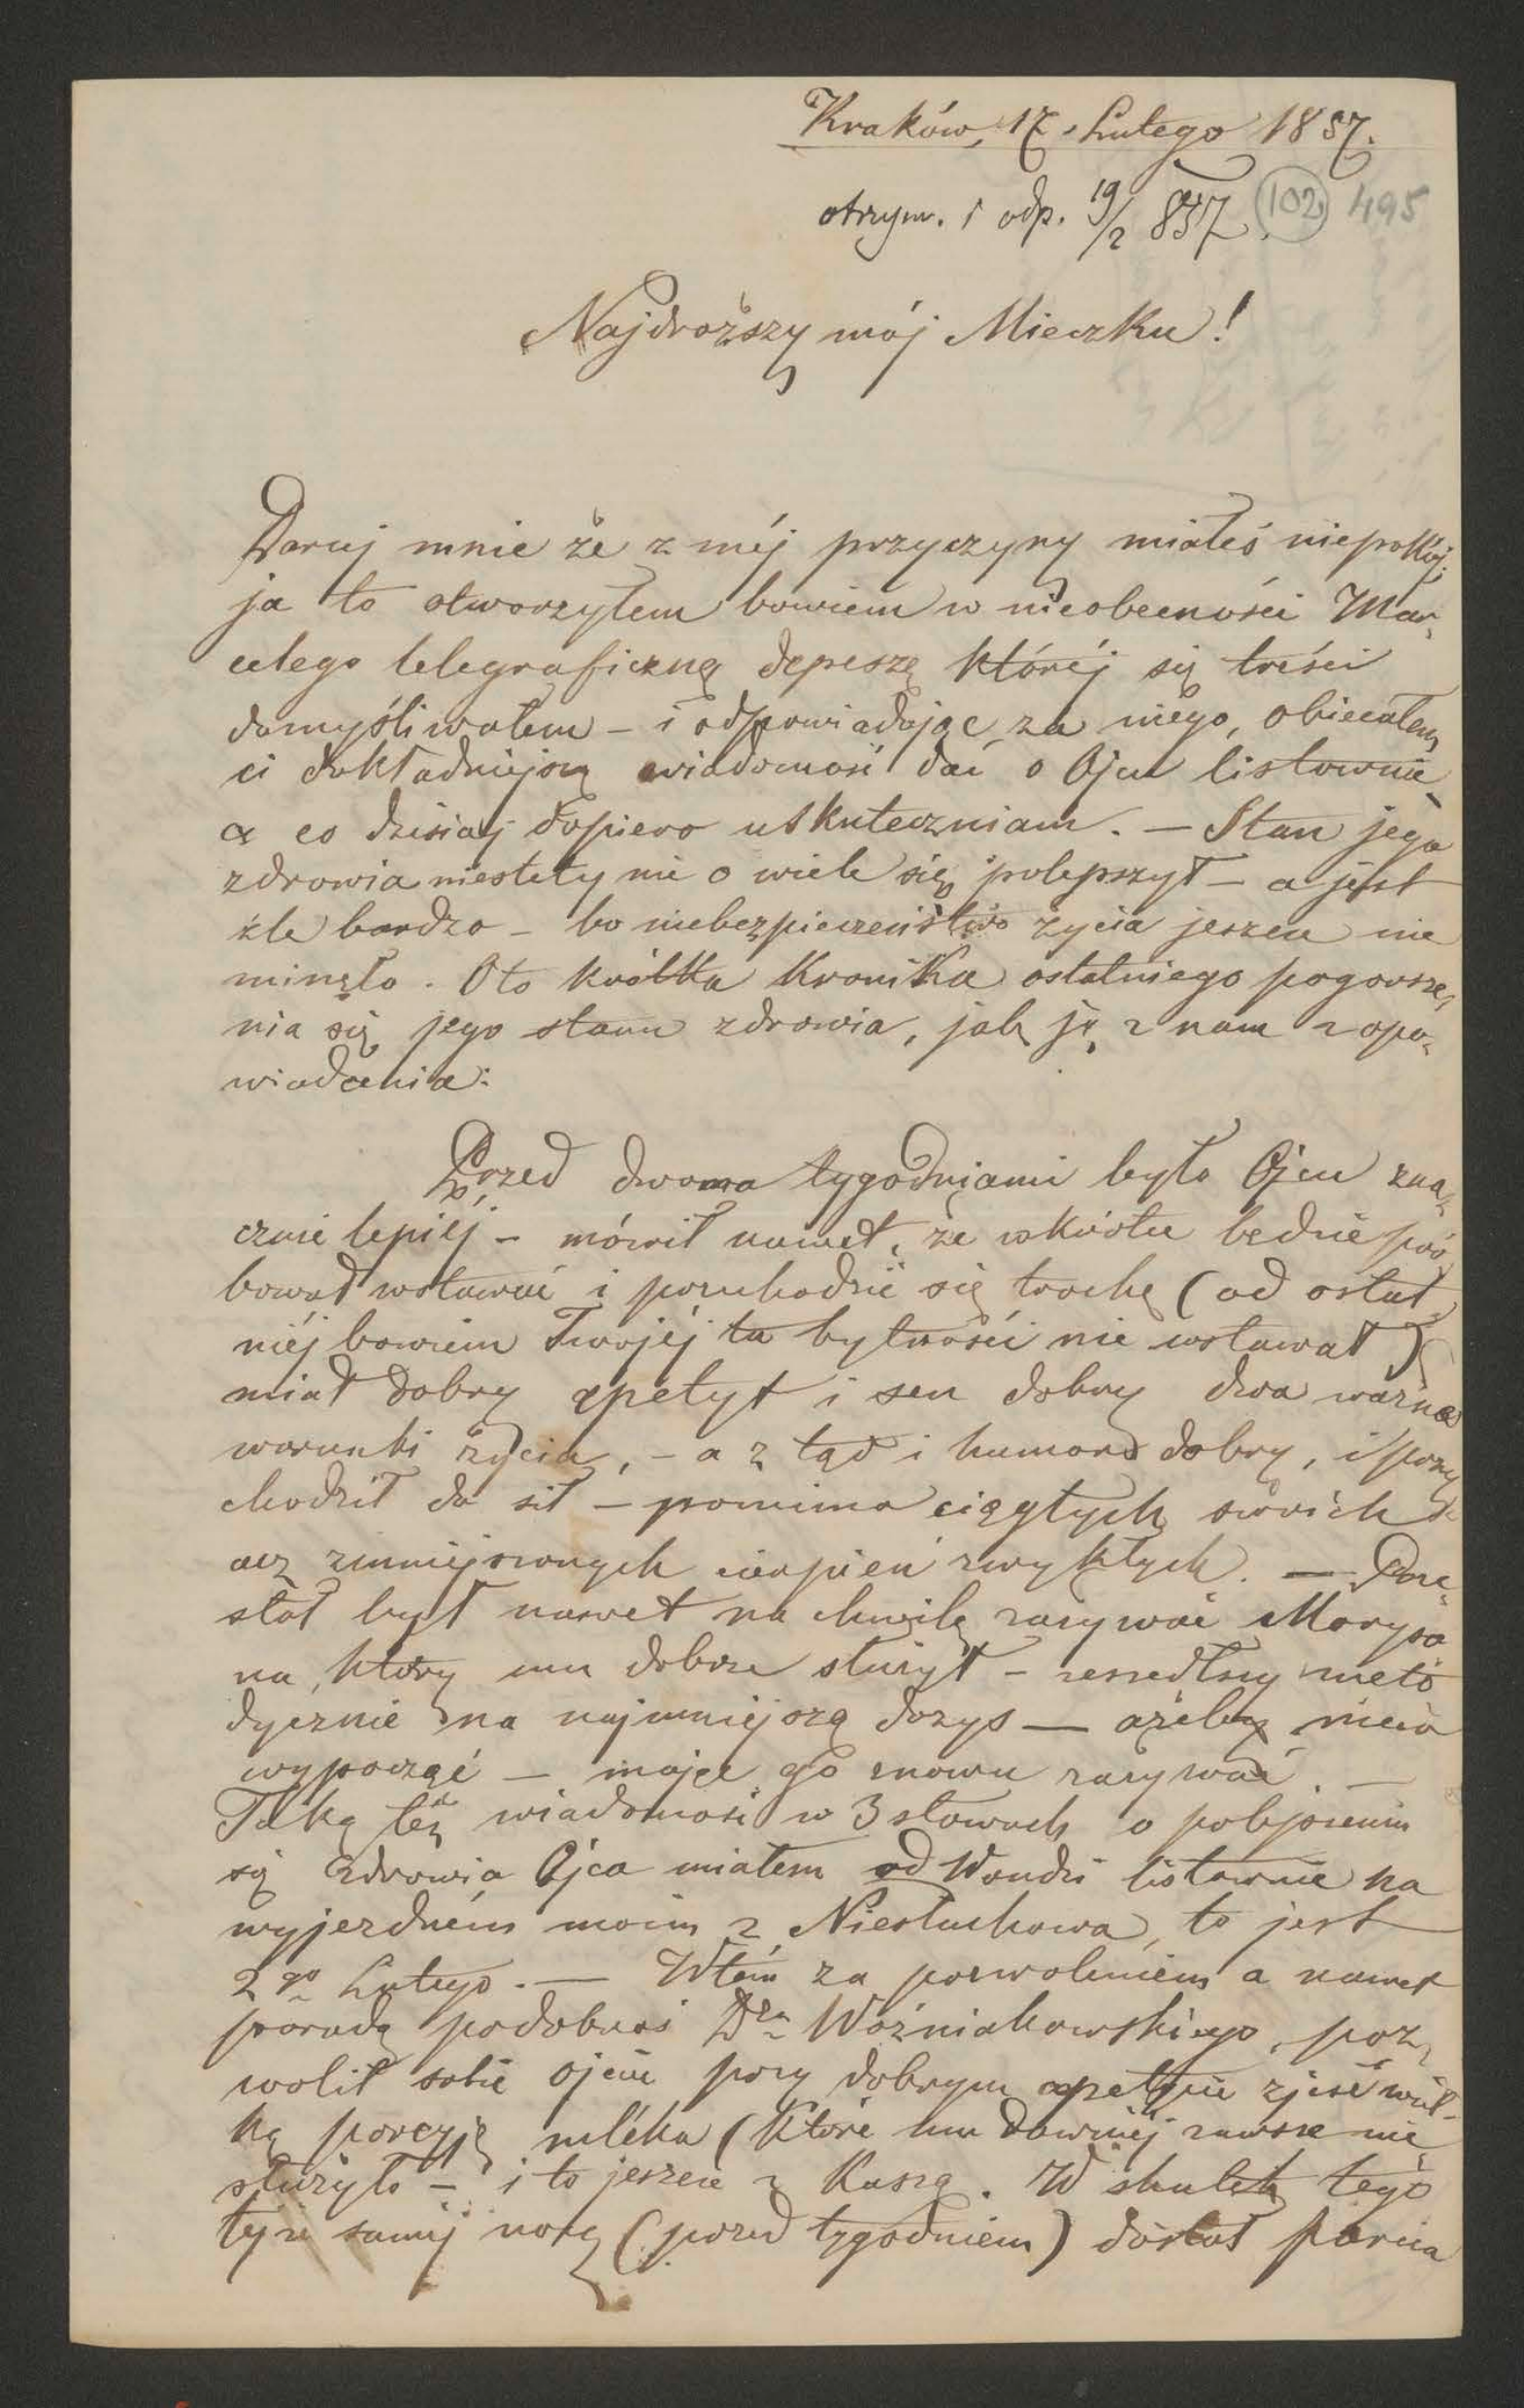 Kraków, 17. Lutego 1857.
otrzym. i odp. 19/2 857. 102 495
Najdroższy mój Mieczku!
Daruj mnie że z méj przyczyny miałeś niepokój;
ja to otworzyłem bowiem w nieobecności Mar-
celego telegraficzną depeszę któréj się treści
domyśliwałem – i odpowiadając za niego, obiecałem
ci dokładniejszą wiadomość dać o Ojcu listownie
a co dzisiaj dopiero uskuteczniam. – Stan jego
zdrowia niestety nie o wiele się polepszył – a jest
źle bardzo – bo niebezpieczeństwo życia jeszcze nie
minęło. Oto krótka Kronika ostatniego pogorsze-
nia się jego stanu zdrowia, jak ją znam z opo-
wiadania:
Przed dwoma tygodniami było Ojcu zna-
cznie lepiéj – mówił nawet, że wkrótce będzie pró
bował wstawać i przechodzić się trochę (od ostat
niéj bowiem Twojéj tu bytności nie wstawał)
miał dobry apetyt i sen dobry dwa ważne
warunki życia, – a z tąd i humor dobry, i przy
chodził do sił – pomimo ciągłych swoich
acz zmniejszonych cierpień zwykłych. – Prze
stał był nawet na chwilę zażywać Moryso
na, który mu dobrze służył – zeszedłszy meto
dycznie na najmniejszą dozys – ażeby nieco
wypocząć – mając go znowu zażywać. –
Taką też wiadomość w 3 słowach o polepszeniu
się zdrowia Ojca miałem od Wandzi listownie na
wyjezdném moim z Niesłuchowa, to jest
2go Lutego. – Wtém za pozwoleniem a nawet
poradą podobnoś Dra Woźniakowskiego, poz-
wolił sobie ojciec przy dobrym apetycie zjeść wiel-
ką porcyję mléka (które mu dawniéj zawsze nie
służyło – i to jeszcze z Kaszą. W skutek tego
tejże saméj nocy (przed tygodniem) dostał parcia